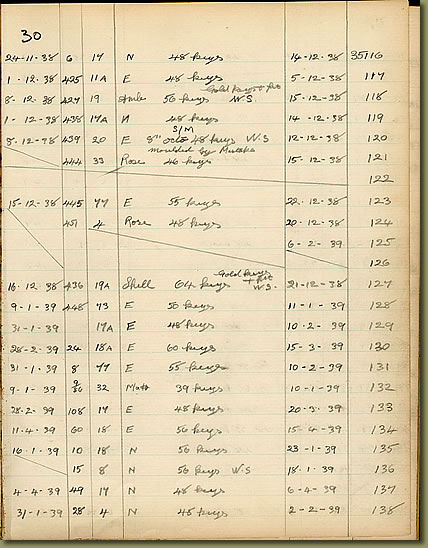 30
24-11-38 6 17 N 48 keys 14-12-38 35116
1-12-38 425 11A E 48 keys 5-12-38 117
Gold keys + flt
8-12-38 427 19 Amb. 56 keys W.S 15-12-38 118
1-12-38 438 17A N 48 keys 14-12-38 119
S/M
8-12-38 439 20 E 8" octo 48 keys W.S 12-12-38 120
moulded by Mistake
444 33 Rose 46 keys 15-12-38 121
122
15-12-38 445 77 E 55 keys 22-12-38 123
451 4 Rose 48 keys 20-12-38 124
6-2-39 125
126
Gold keys
+ flt
16-12-38 436 19A Shell 64 keys W.S. 21-12-38 127
9-1-39 448 73 E 56 keys 11-1-39 128
31-1-39 17A E 48 keys 10-2-39 129
28-2-39 24 18A E 60 keys 15-3-39 130
31-1-39 8 77 E 55 keys 10-2-39 131
9-1-39 32 Matt 39 keys 10-1-39 132
28-2-39 108 17 E 48 keys 20-3-39 133
11-4-39 60 18 E 56 keys 15-4-39 134
16-1-39 10 18 N 56 keys 23-1-39 135
15 8 N 56 keys W.S 18-1-39 136
4-4-39 49 17 N 48 keys 6-4-39 137
31-1-39 28 4 N 48 keys 2-2-39 138